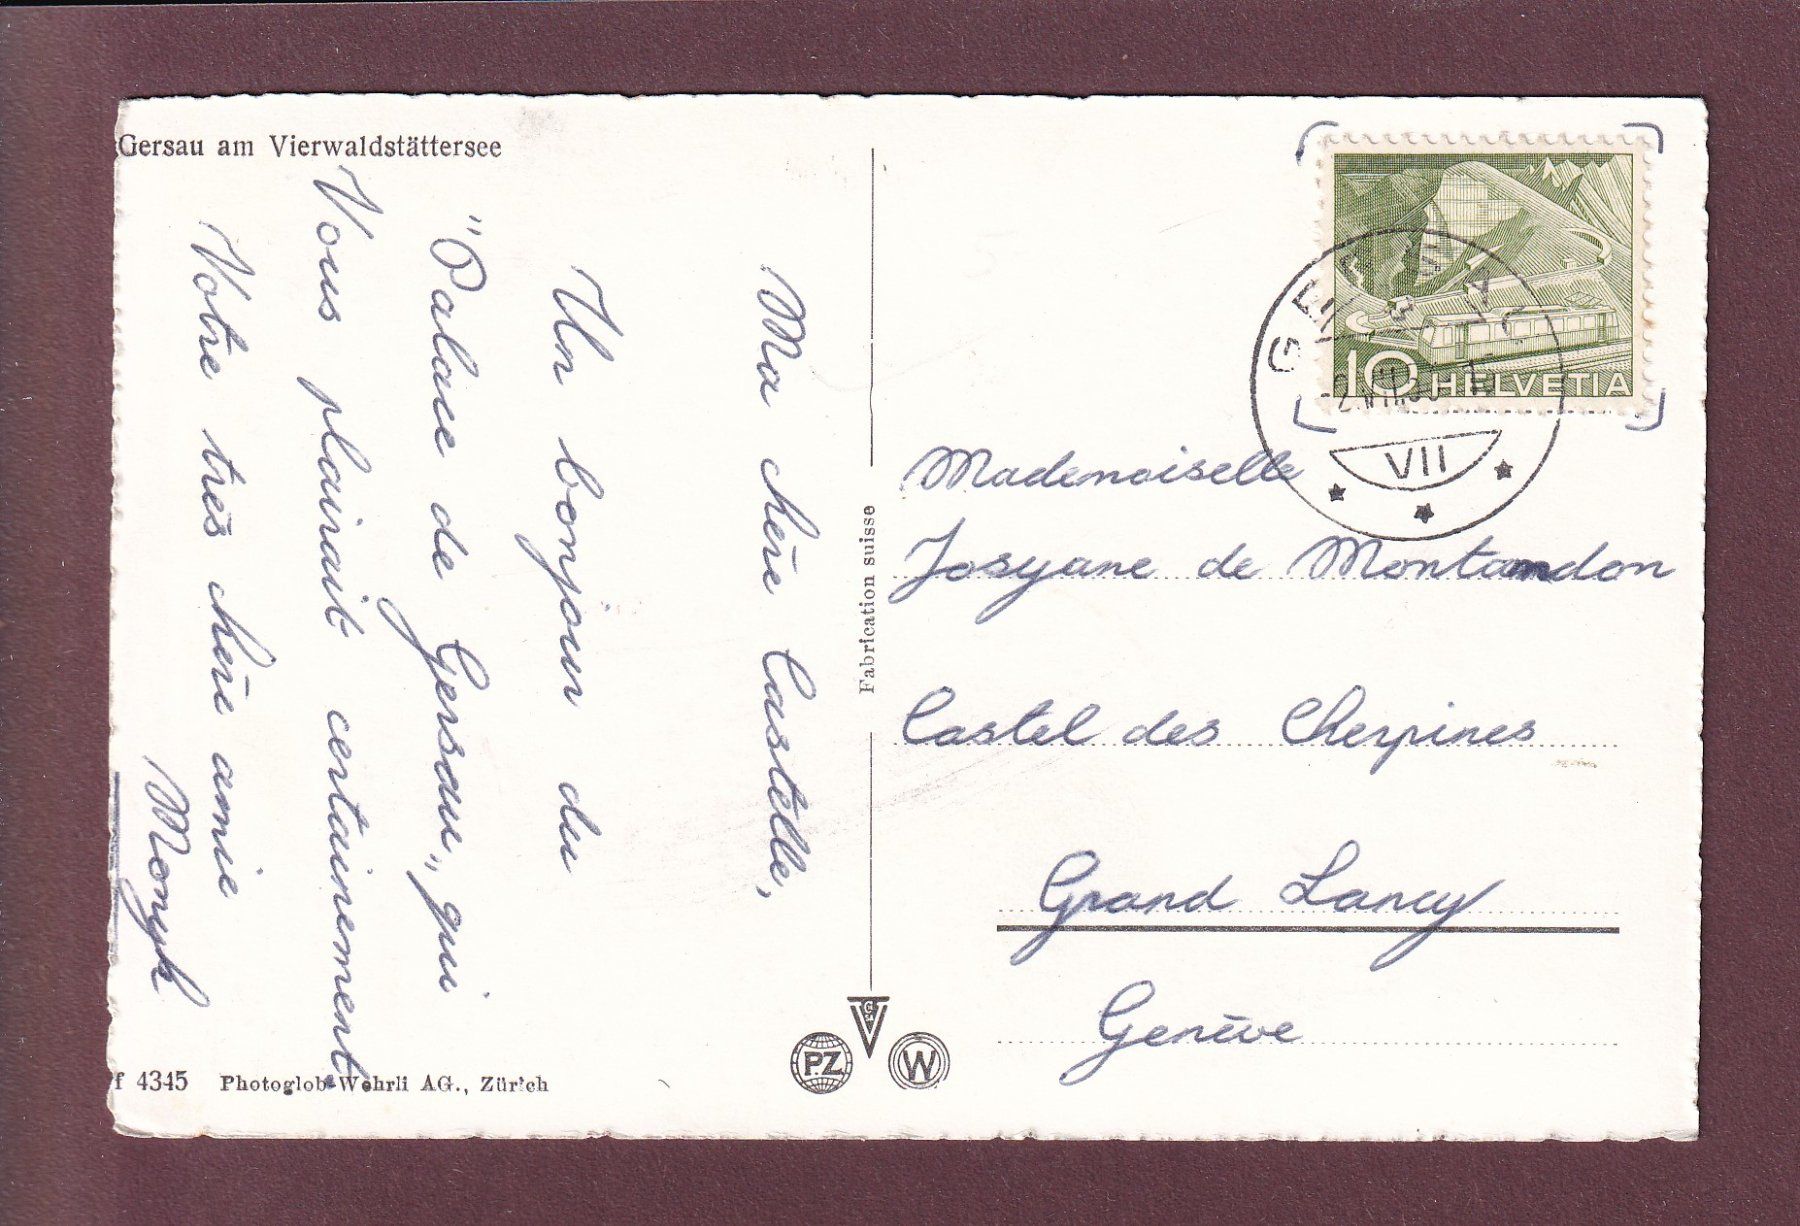 Gersau am Vierwaldstättersee
Ma chère Castelle,
Un bonjour du
"Palace de Gersau„ qui
Vous plairait certainement.
Votre très chère amie
Monyk
f 4345 Photoglob-Wehrli AG., Zürich
Fabrication suisse
PZ
V
W
10 HELVETIA
GERSAU
VII
Mademoiselle
Josyane de Montandon
Castel des Cherpines
Grand Lancy
Genève